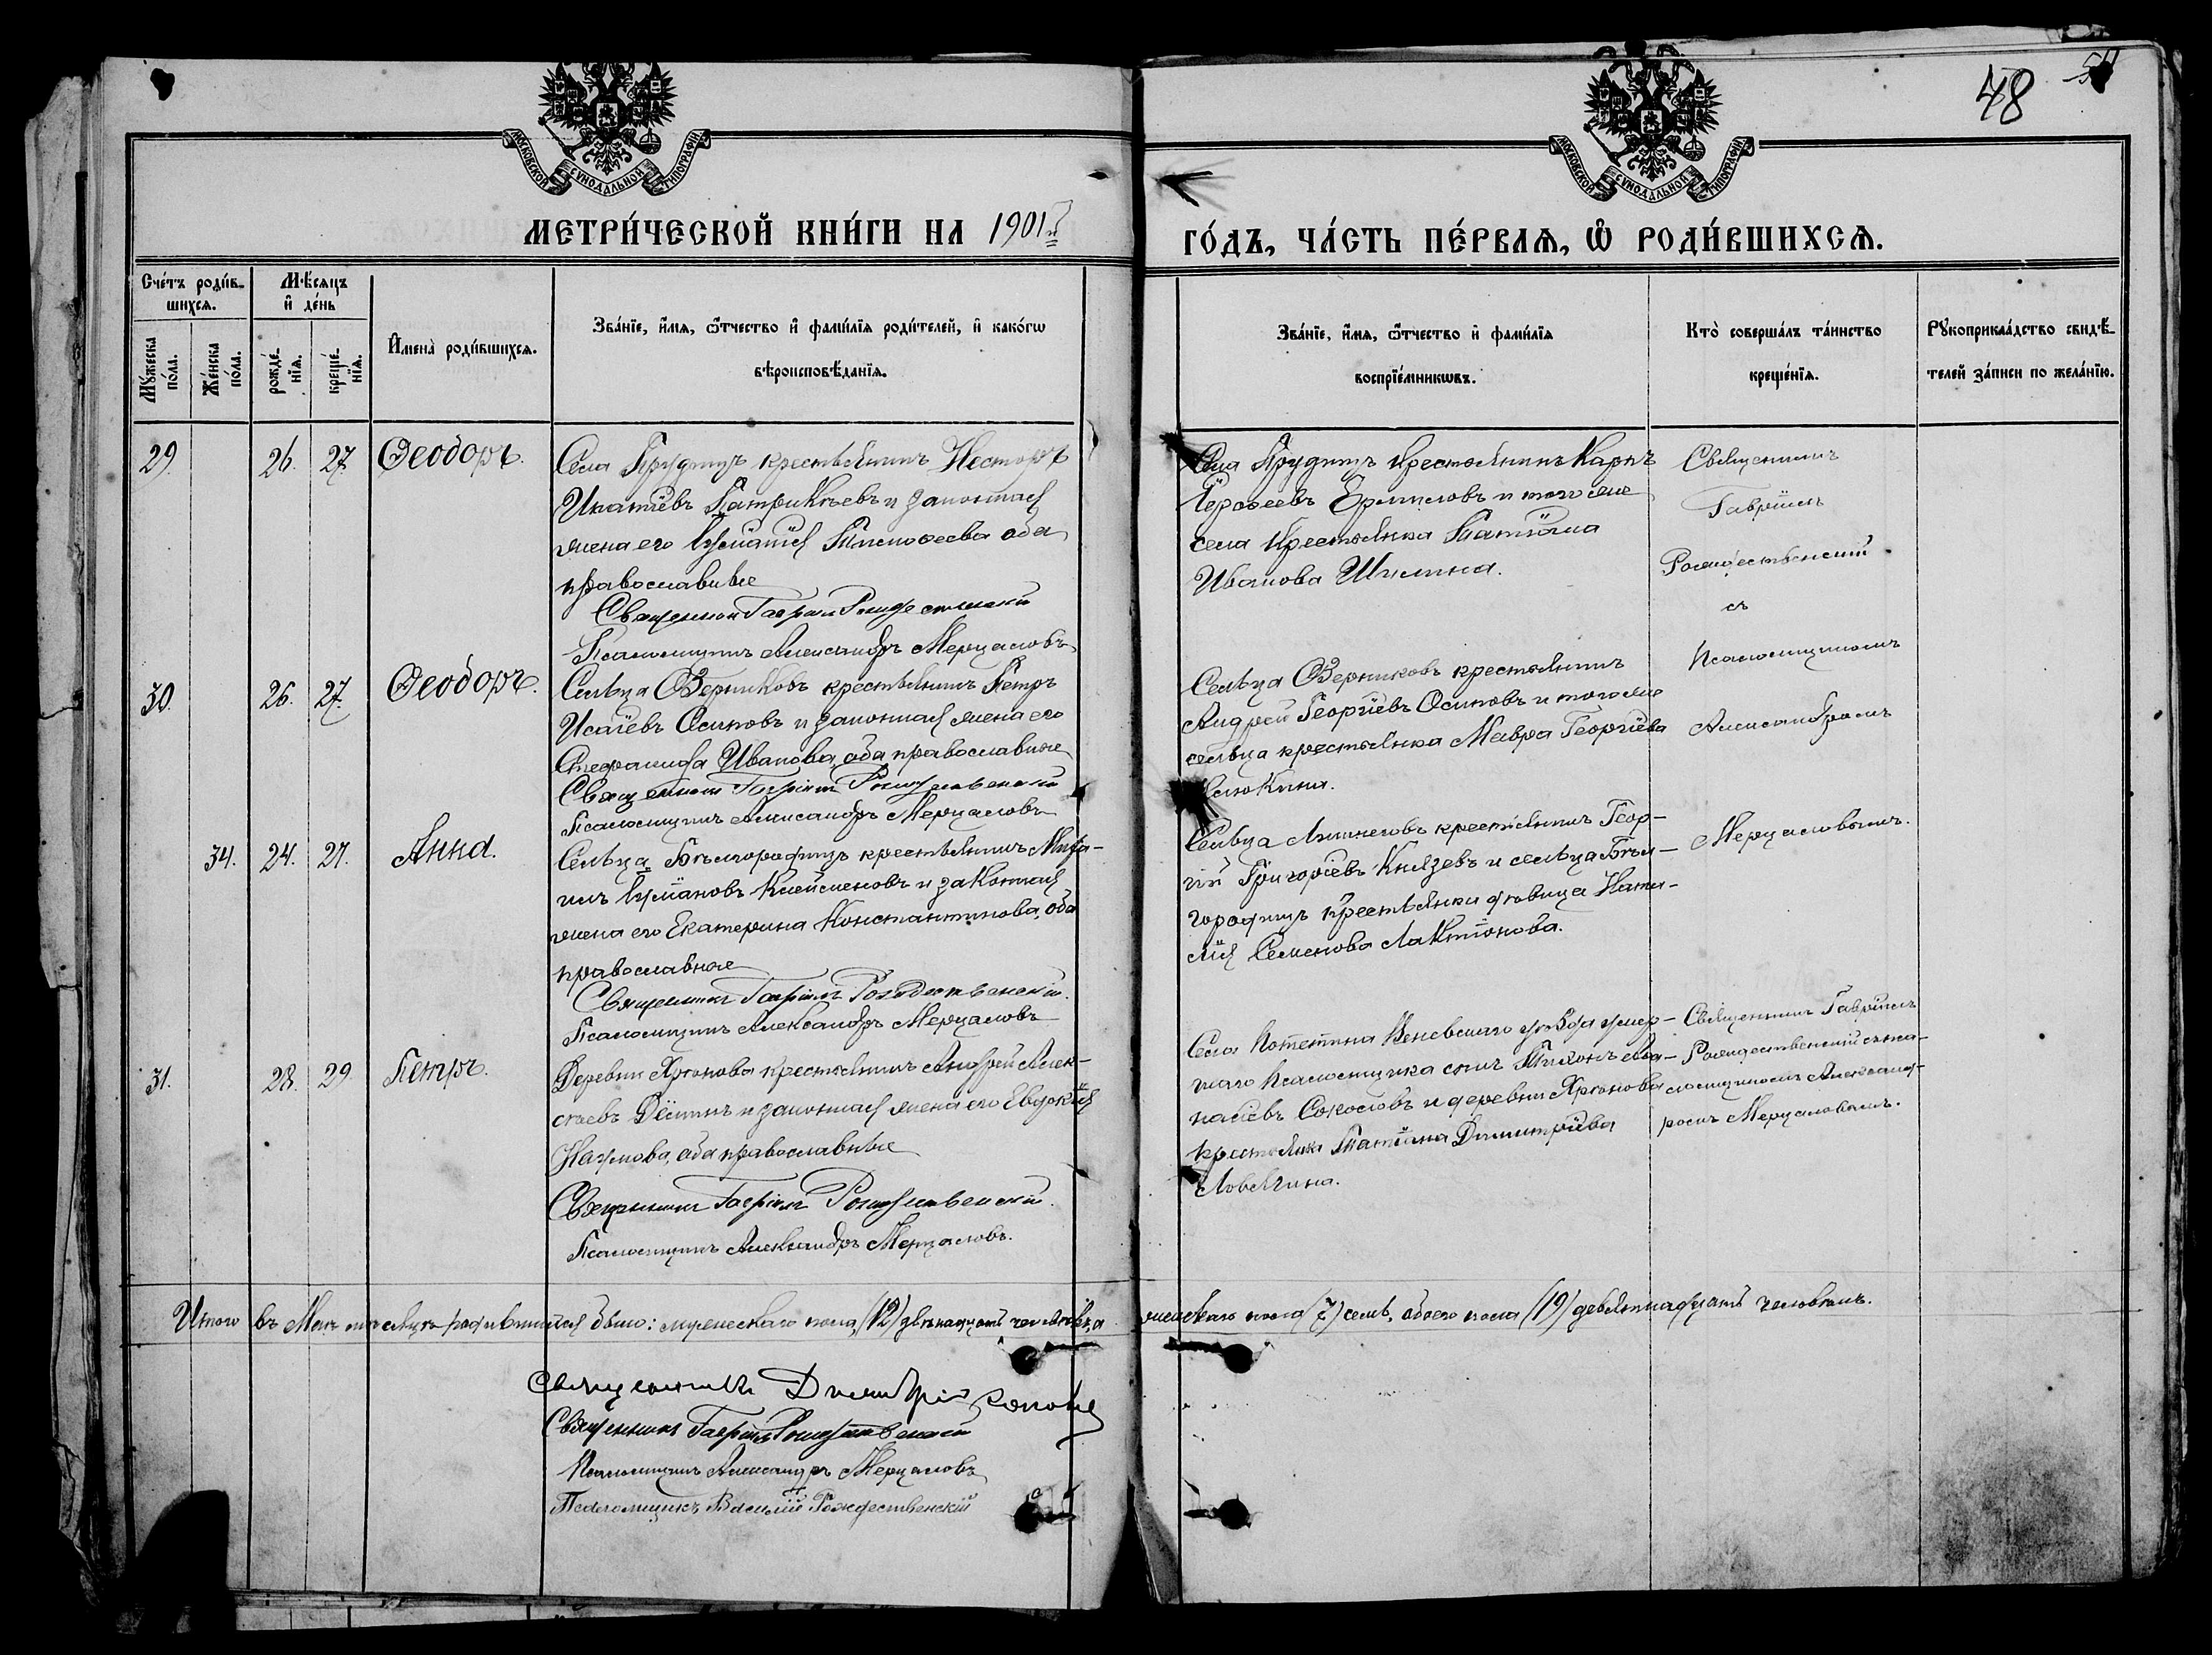 48
МОСКОВСКОЙ СУНОДАЛЬНОЙ ТИПОГРАФІИ
МОСКОВСКОЙ СУНОДАЛЬНОЙ ТИПОГРАФІИ
МЕТРИ́ЧЕСКОЙ КНИ́ГИ НА 1901й
ГО́ДЪ, ЧА́СТЬ ПЕ́РВАѦ, Ѡ҆ РОДИ́ВШИХСѦ.
Сче́тъ роди́в-
шихсѧ.
Мѣ́сѧцъ
и҆ де́нь
Мꙋ́жеска
по́ла.
Же́нска
по́ла.
рожде́-
нїѧ.
креще́-
нїѧ.
И҆мена̀ роди́вшихсѧ.
Зва́нїе, и҆́мѧ, ѻ҆́тчество и҆ фами́лїѧ роди́телей, и҆ како́гѡ
вѣроисповѣ́данїѧ.
Зва́нїе, и҆́мѧ, ѻ҆́тчество и҆ фами́лїѧ
воспрїе́мникѡвъ.
Кто̀ соверша́лъ та́инство
креще́нїѧ.
Рꙋкоприкла́дство свидѣ́-
телей за́писи по жела́нїю.
29. 26. 27. Ѳеодоръ.
Села Прудищъ крестьянинъ Несторъ
Игнатіевъ Патрикѣевъ и законная
жена его Тимоѳеева оба
православные
Священникъ Гавріилъ Рождественскій
Псаломщикъ Александръ Мерцаловъ
Села Прудищъ крестьянинъ Карпъ
Ероѳеевъ Ермиловъ и того же
села крестьянка Татіана
Иванова Шилина.
Священникъ
Гавріилъ
Рождественскій
съ
Псаломщикомъ
Александромъ
Мерцаловымъ.
30. 26. 27. Ѳеодоръ.
Сельца Озерниковъ крестьянинъ Петръ
Исаіевъ Осиповъ и законная жена его
Стефанида Иванова, оба православные
Священникъ Гавріилъ Рождественскій
Псаломщикъ Александръ Мерцаловъ
Сельца Озерниковъ крестьянинъ
Андрей Георгіевъ Осиповъ и того же
сельца крестьянка Мавра Георгіева
34. 24. 27. Анна.
Сельца Бѣлгородищъ крестьянинъ Миха-
илъ Клейменовъ и законная
жена его Екатерина Константинова, оба
православные
Священникъ Гавріилъ Рождественскій.
Псаломщикъ Александръ Мерцаловъ
Сельца крестьянинъ Геор-
гій Григоріевъ Князевъ и сельца Бѣл-
городищъ крестьянка вдовица Ната-
лія Семенова Лактіонова.
31. 28. 29. Петръ.
Деревни Хрюнова крестьянинъ Андрей Алек-
сѣевъ и законная жена его Евдокія
Наумова, оба православные
Священникъ Гавріилъ Рождественскій.
Псаломщикъ Александръ Мерцаловъ.
Села Веневскаго уѣзда умер-
шаго Псаломщика сынъ Тихонъ Аѳа-
насіевъ Соколовъ и деревни Хрюнова
крестьянка Татіана Димитріева
Ловягина.
Священникъ Гавріилъ
Рождественскій съ пса-
ломщикомъ Александ-
ромъ Мерцаловымъ.
Итого въ Маѣ мѣсяцѣ родившихся было: мужескаго пола (12) двѣнадцать человѣкъ, а
женскаго пола (7) семь, обоего пола (19) девятнадцать человѣкъ.
Священникъ Димитрій Поповъ
Священникъ Гавріилъ Рождественскій
Псаломщикъ Александръ Мерцаловъ
Псаломщикъ Василій Рождественскій